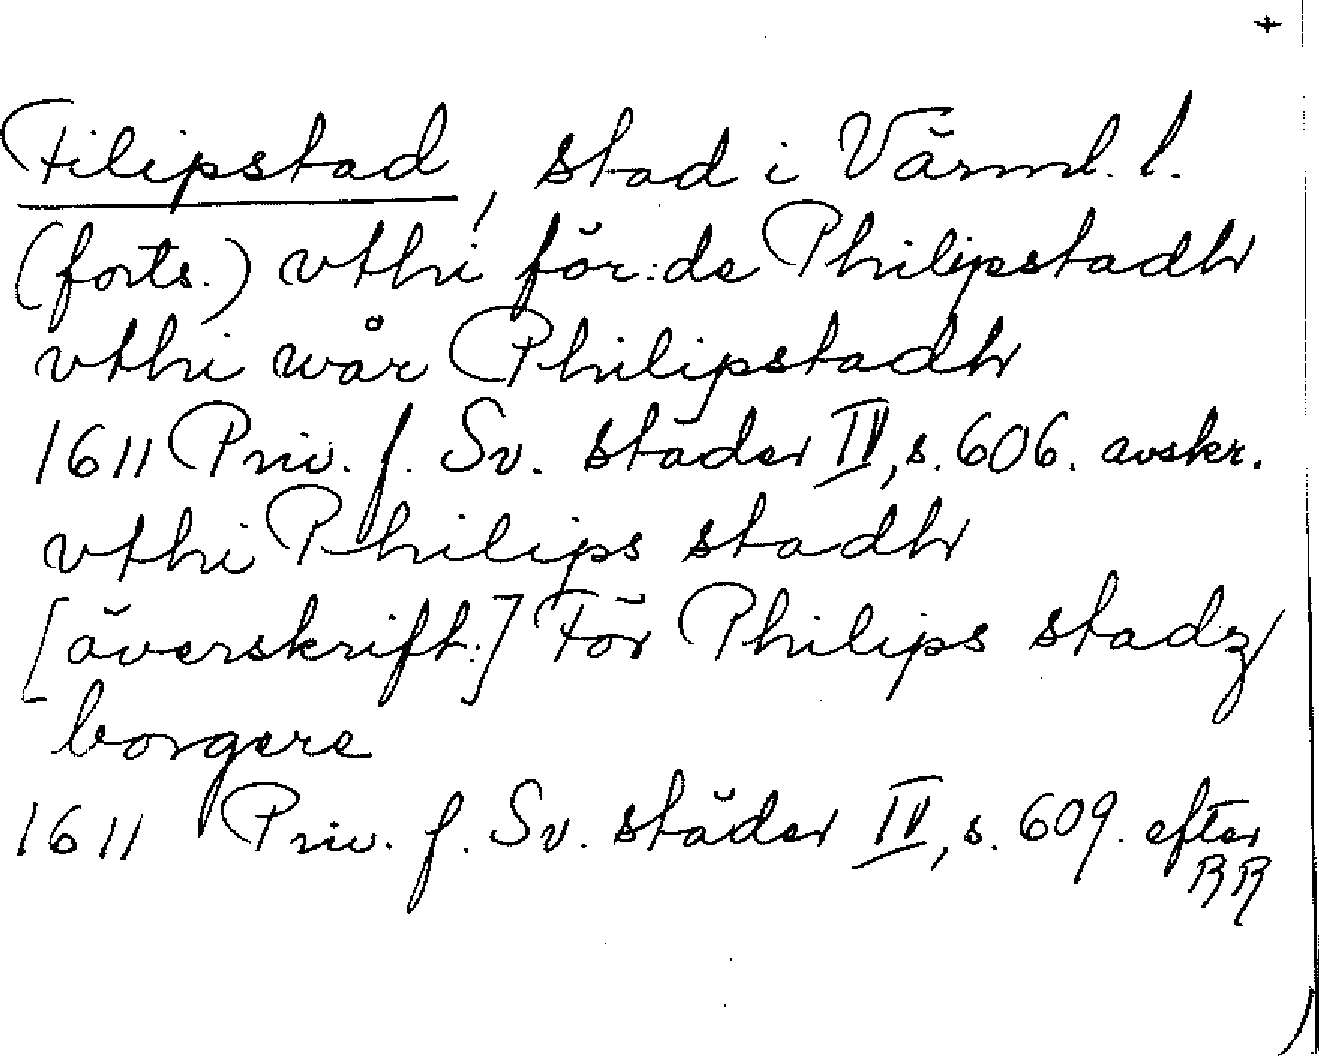 Filipstad, stad i Värml. l.
(forts.) vthi för:de Philipstadh
vthi wår Philipstadh
1611 Priv. f. Sv. städer IV, s. 606. avskr.
vthi Philips stadh
[överskrift:] För Philips stadz
borgere
1611 Priv. f. Sv. städer IV, s. 609. efter
RR